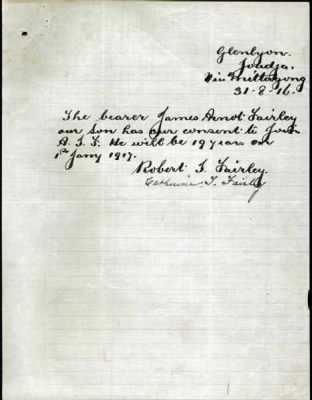 Glenlyon.
Joadja.
Via Mittagong
31-8-16.
The bearer James Arndt Fairley
our Son has our consent to Join
A.I.F. He will be 19 years on
1st Jany 1917.
Robert T. Fairley.
Catherine T. Fairley